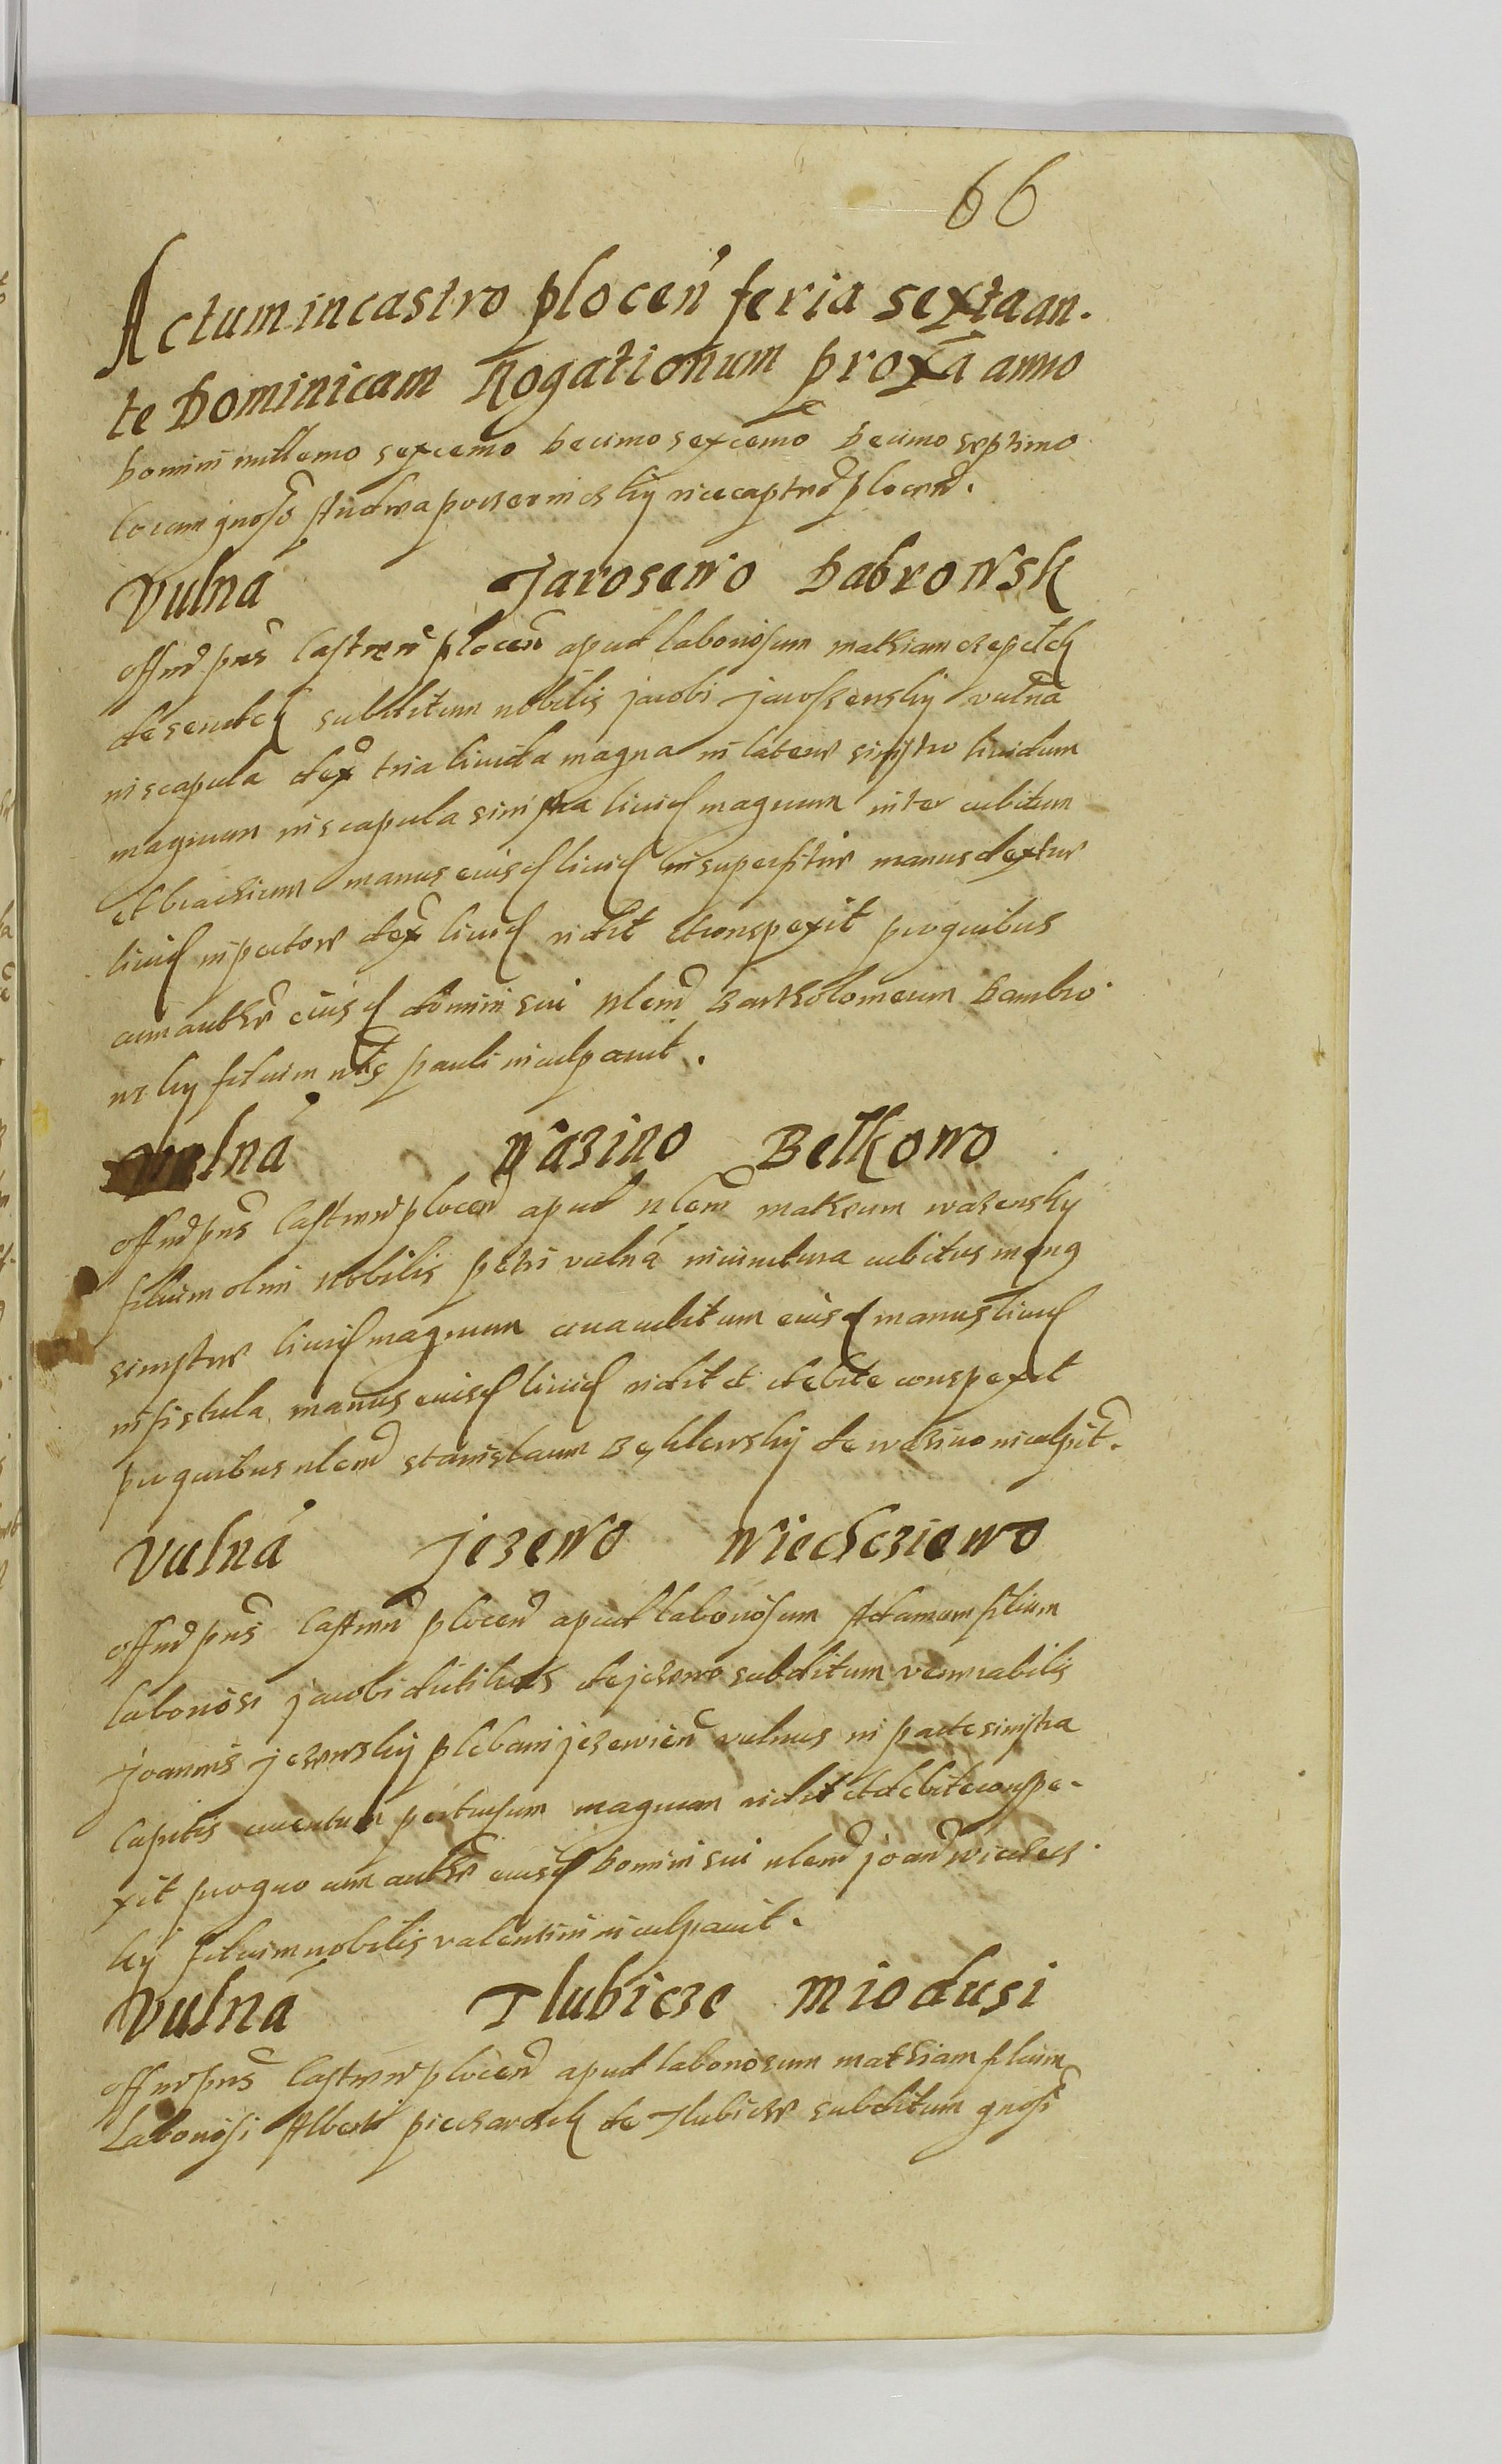 66
Actum in castro plocen feria sexta an-
te Dominicam Rogationum proxa anno
Domini millemo sexcemo decimo sexcemo Decimo septimo
coram gnoso Andrea vicecaptneo plocen.
Vulna Jarosewo Dabrowsk
Offm pns Castren plocen apud laboriosum mathiam
de subditum nobilis jacobi jarossewsky vulna
in scapula dex tria livida magna in latere sinistro lividum
magnum in scapula sinistra livid magnum inter cubitum
et brachium manus eiusd livid in superfitie manus dextre
livid in pectore dex livid vidit et conspexit pro quibus
cum authte eiusd domini sui nlem Bartholomeum Dambro-
wsky filium nlis pauli inculpavit.
Vulna Wazino Belkowo
Offm pns Castren plocen apud nlem matheum wazensky
filium olim Nobilis petri vulna in iunctura cubitus mang
sinistre livid magnum circa cubitum eiusd manus livid
in fistula manus eiusd livid vidit et debite conspexit
pro quibus nlem stanislaum de wazino inculpit.
Vulna Jezewo Wiechcziewo
Offm pns Castren plocen apud laboriosum Adamum filium
laboriosi jacobi de jezewo subditum venerabilis
joannis jezewsky plebani jezewien vulnus in parte sinistra
capitis cruentum pertusum magnum vidit et debite conspe-
xit pro quo cum authte eiusd Domini sui nlem joan
ky filium nobilis valentini inculpavit.
Vulna Tlubicze Miodusi
Offm pns Castren plocen apud laboriosum mathiam filium
Laboriosi Alberti de Tlubicze subditum gnosi